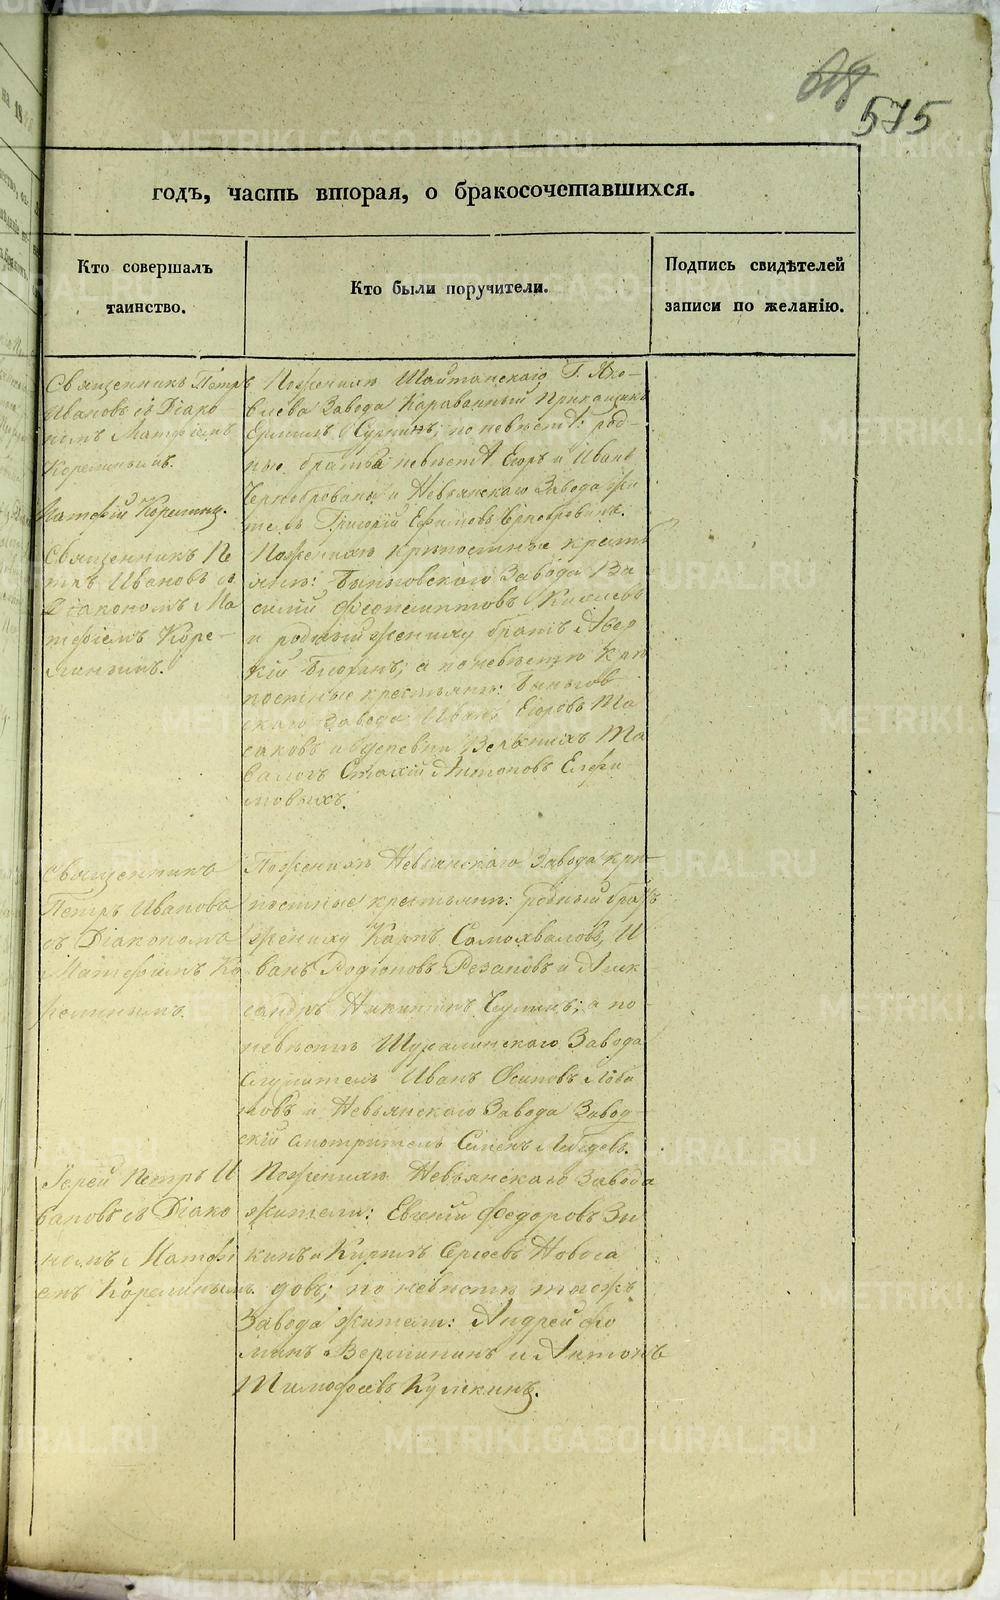 618
515
годъ, часть вторая, о бракосочетавшихся.
Кто совершалъ
таинство.
Кто были поручители.
Подпись свидѣтелей
записи по желанію.
Священникъ Петръ
Ивановъ съ Діако-
номъ Матфіемъ
Корелинымъ.
Матфій Корелинъ.
Пожениху Шайтанскаго Г. Яко-
влева Завода Караванный Прикащикъ
по невѣстѣ: род-
ные братья невѣсты Егоръ и Иванъ
и Невьянскаго Завода жи
тель Григорій Ефимовъ
Священникъ Пе
тръ Ивановъ съ
Діакономъ Ма
тфіемъ Коре-
линымъ.
Пожениху крѣпостные кресть
яне: Быньговскаго Завода Ва
силий
и родный жениху братъ Авер
кій а по невѣстѣ крѣ
постные крестьяне: Быньгов
скаго Завода Иванъ Егоровъ
и деревни Верхнихъ Та
вологъ Антоновъ Елфи
мовыхъ.
Священникъ
Петръ Ивановъ
съ Діакономъ
Матфіемъ Ко
релинымъ.
Пожениху Невьянскаго Завода крѣ-
постные крестьяне: родный братъ
жениху Карпъ Самохваловъ, И
ванъ Родіоновъ Резановъ и Алек
сандръ Никитинъ а по
невѣстѣ Шуралинскаго Завода
Служитель Иванъ Осиповъ Лоба
новъ и Невьянскаго Завода Завод-
скій смотритель Семенъ Лебедевъ.
Іерей Петръ И
вановъ съ Діако
номъ Матфі
емъ Корелинымъ.
Пожениху Невьянскаго Завода
жители: Евгеній Федоровъ Зы
кинъ и Кирилъ Сергѣевъ Новоса
довъ; по невѣстѣ тогожъ
Завода жители: Андрей Фо
минъ Вершининъ и Антонъ
Тимофѣевъ
METRIKI.GASO-URAL.RU